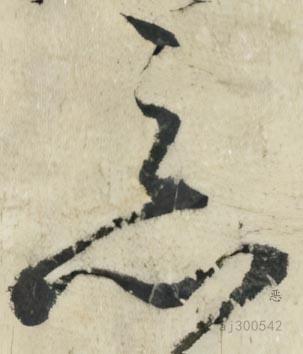 恶
恶
aj300542